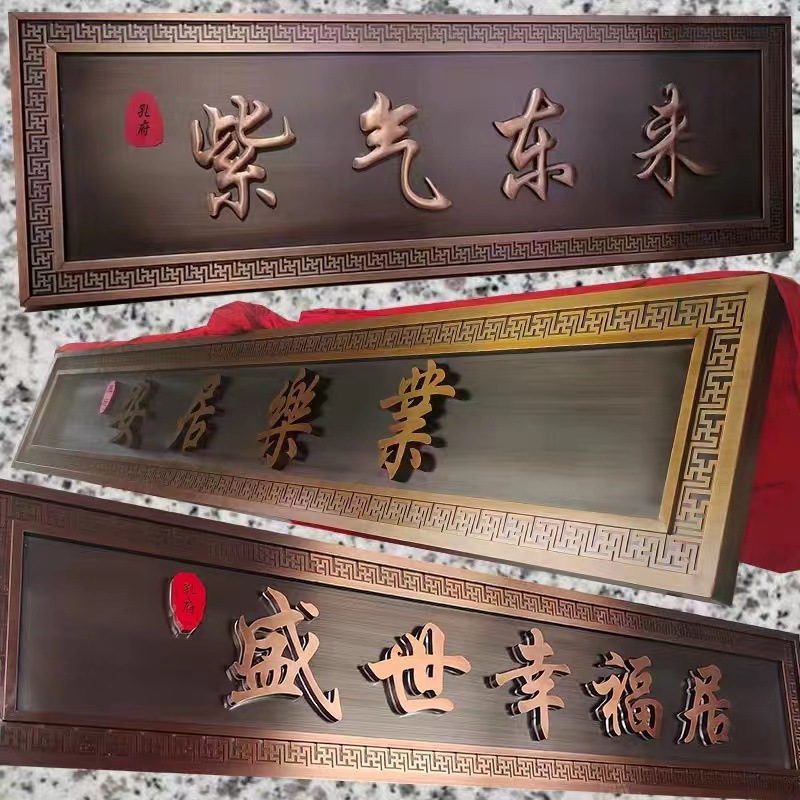 孔府
紫气东来
安居樂業
孔府
盛世幸福居